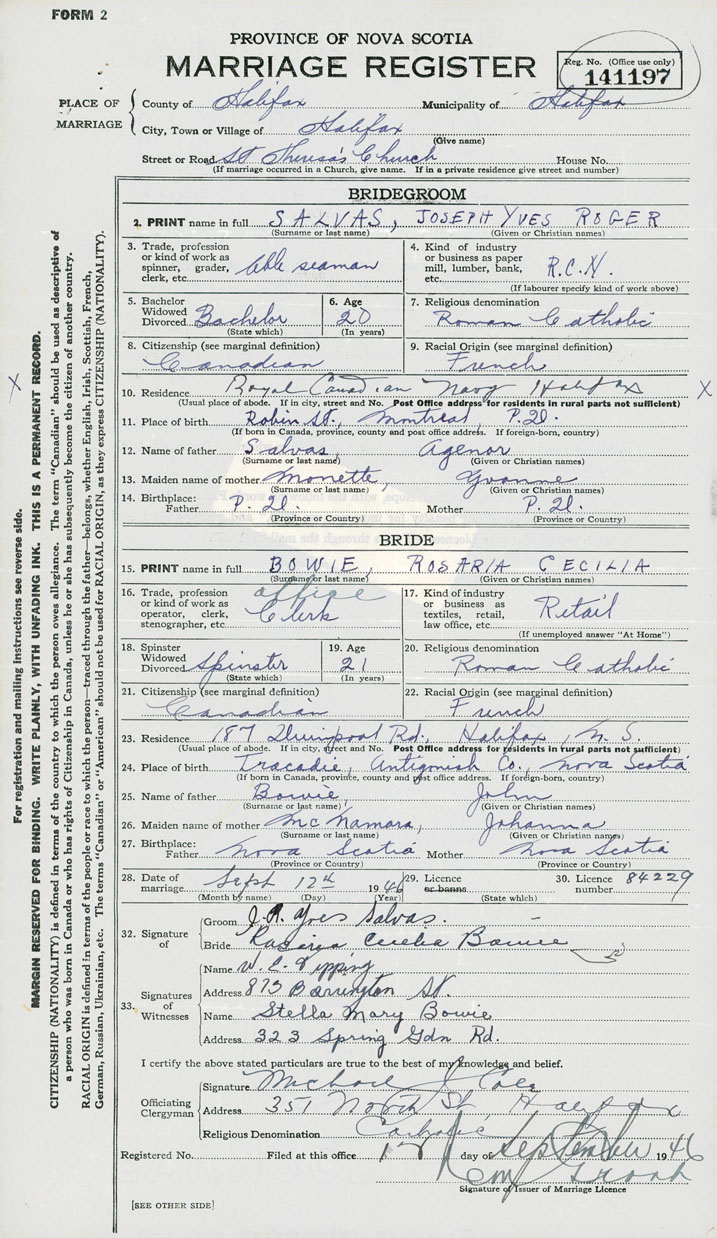 FORM 2
PROVINCE OF NOVA SCOTIA
MARRIAGE REGISTER
Reg. No. (Office use only)
141197
PLACE OF MARRIAGE
County of Halifax Municipality of Halifax
City, Town or Village of Halifax
(Give name)
Street or Road St Theresa's Church House No.
(If marriage occurred in a Church, give name. If in a private residence give street and number)
BRIDEGROOM
2. PRINT name in full SALVAS, JOSEPH YVES ROGER
(Surname or last name) (Given or Christian names)
3. Trade, profession or kind of work as spinner, grader, clerk, etc. Able seaman
4. Kind of industry or business as paper mill, lumber, bank, etc. R.C.N.
(If labourer specify kind of work above)
5. Bachelor Widowed Divorced Bachelor
(State which)
6. Age 20
(In years)
7. Religious denomination Roman Catholic
8. Citizenship (see marginal definition) Canadian
9. Racial Origin (see marginal definition) French
10. Residence Royal Canadian Navy Halifax
(Usual place of abode. If in city, street and No. Post Office address for residents in rural parts not sufficient)
11. Place of birth Robin St., Montreal, P.Q.
(If born in Canada, province, county and post office address. If foreign-born, country)
12. Name of father Salvas, Agenor
(Surname or last name) (Given or Christian names)
13. Maiden name of mother Monette, Yvonne
(Surname or last name) (Given or Christian names)
14. Birthplace: Father P.Q. Mother P.Q.
(Province or Country) (Province or Country)
BRIDE
15. PRINT name in full BOWIE, ROSARIA CECILIA
(Surname or last name) (Given or Christian names)
16. Trade, profession or kind of work as operator, clerk, stenographer, etc office Clerk
17. Kind of industry or business as textiles, retail, law office, etc. Retail
(If unemployed answer "At Home")
18. Spinster Widowed Divorced Spinster
(State which)
19. Age 21
(In years)
20. Religious denomination Roman Catholic
21. Citizenship (see marginal definition) Canadian
22. Racial Origin (see marginal definition) French
23. Residence 187 Rd. Halifax, N.S.
(Usual place of abode. If in city, street and No. Post Office address for residents in rural parts not sufficient)
24. Place of birth Tracadie, Antigonish Co., Nova Scotia
(If born in Canada, province, county and post office address. If foreign-born, country)
25. Name of father Bowie, John
(Surname or last name) (Given or Christian names)
26. Maiden name of mother McNamara, Johanna
(Surname or last name) (Given or Christian names)
27. Birthplace: Father Nova Scotia Mother Nova Scotia
(Province or Country) (Province or Country)
28. Date of marriage Sept 12th 1946
(Month by name) (Day) (Year)
29. Licence or banns
(State which)
30. Licence number 84229
32. Signature of
Groom J.R. Yves Salvas.
Bride Rosaria Cecelia Bowie
33. Signatures of Witnesses
Name W. C. Tipping
Address 873 Barrington St.
Name Stella Mary Bowie
Address 323 Spring Gdn Rd.
I certify the above stated particulars are true to the best of my knowledge and belief.
Officiating Clergyman
Signature Michael J Cole
Address 351 North St, Halifax
Religious Denomination Catholic
Registered No. Filed at this office 17 day of September 1946
Signature of Issuer of Marriage Licence
[SEE OTHER SIDE]
For registration and mailing instructions see reverse side.
MARGIN RESERVED FOR BINDING. WRITE PLAINLY, WITH UNFADING INK. THIS IS A PERMANENT RECORD.
CITIZENSHIP (NATIONALITY) is defined in terms of the country to which the person owes allegiance. The term "Canadian" should be used as descriptive of
a person who was born in Canada or who has rights of Citizenship in Canada, unless he or she has subsequently become the citizen of another country.
RACIAL ORIGIN is defined in terms of the people or race to which the person—traced through the father—belongs, whether English, Irish, Scottish, French,
German, Russian, Ukrainian, etc. The terms "Canadian" or "American" should not be used for RACIAL ORIGIN, as they express CITIZENSHIP (NATIONALITY).